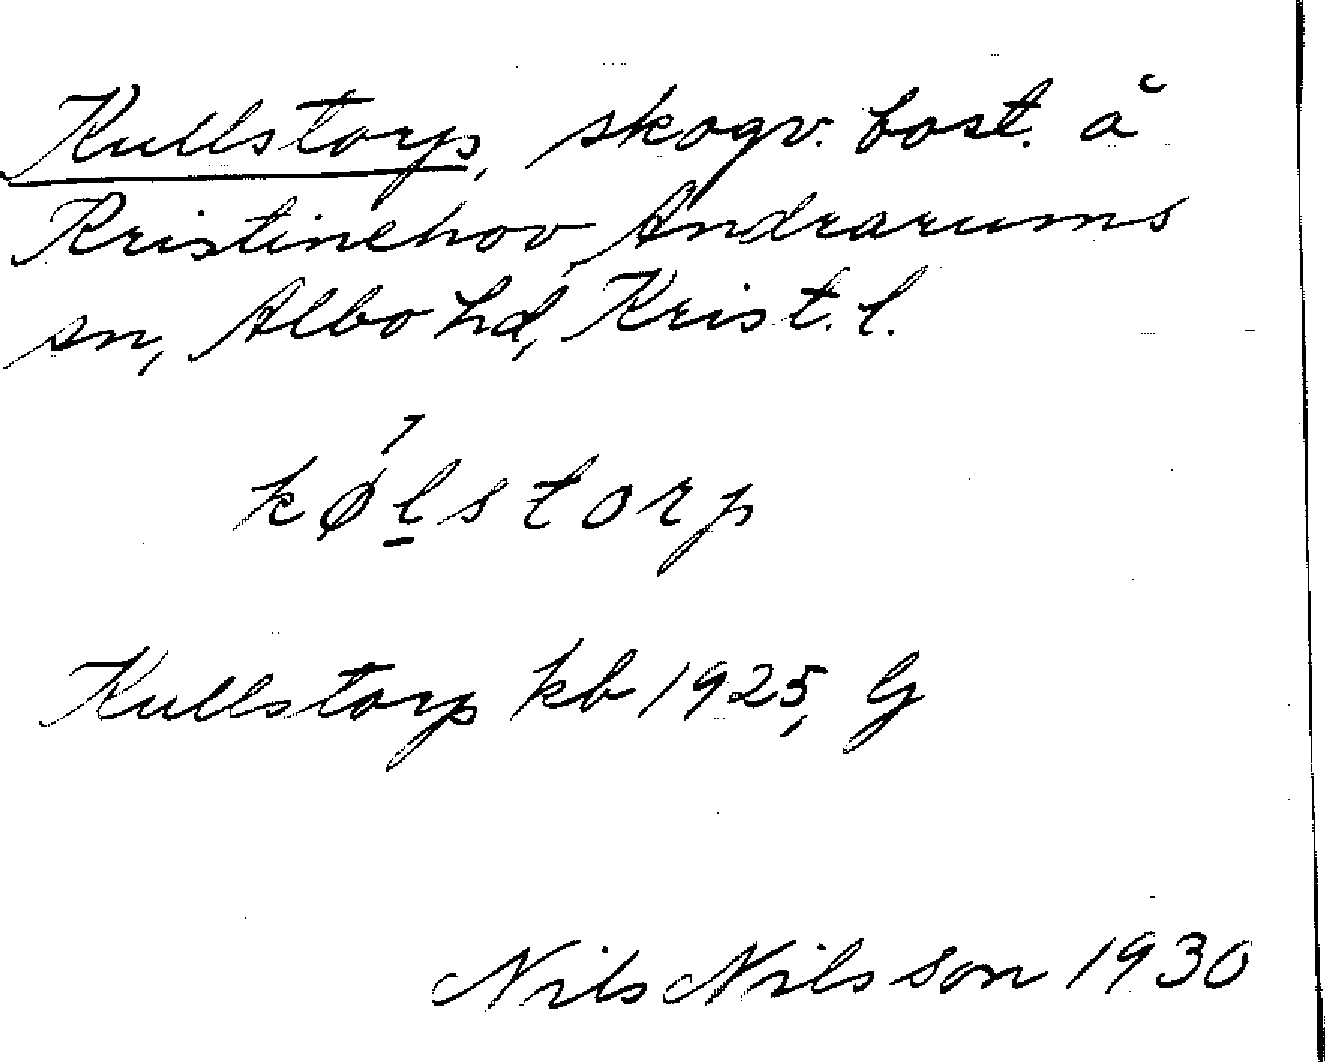 Kullstorp, skogv. bost. å
Kristinehov, Andrarums
sn, Albo hd, Krist. l.
kǿl̲storp
Kullstorp kb 1925, G
Nils Nilsson 1930